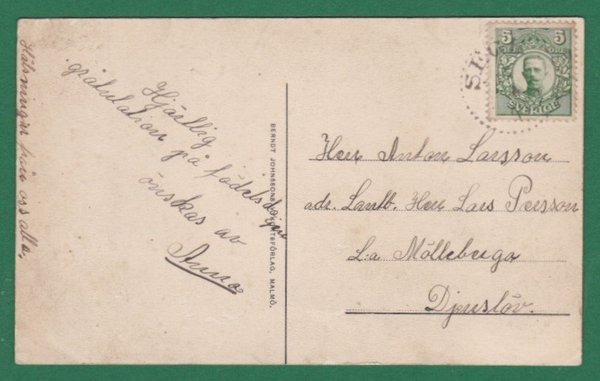 Hälsningar från oss alla,
Hjärtlig
gratulation på födelsdagen
önskas av
Anna
BERNDT JOHNSSONS KORTSFÖRLAG, MALMÖ.
5 5
ÖRE
SVERIGE
Herr Anton Larsson
adr. Lantb. Herr Lars Persson
L:a Mölleberga
Djurslöv.